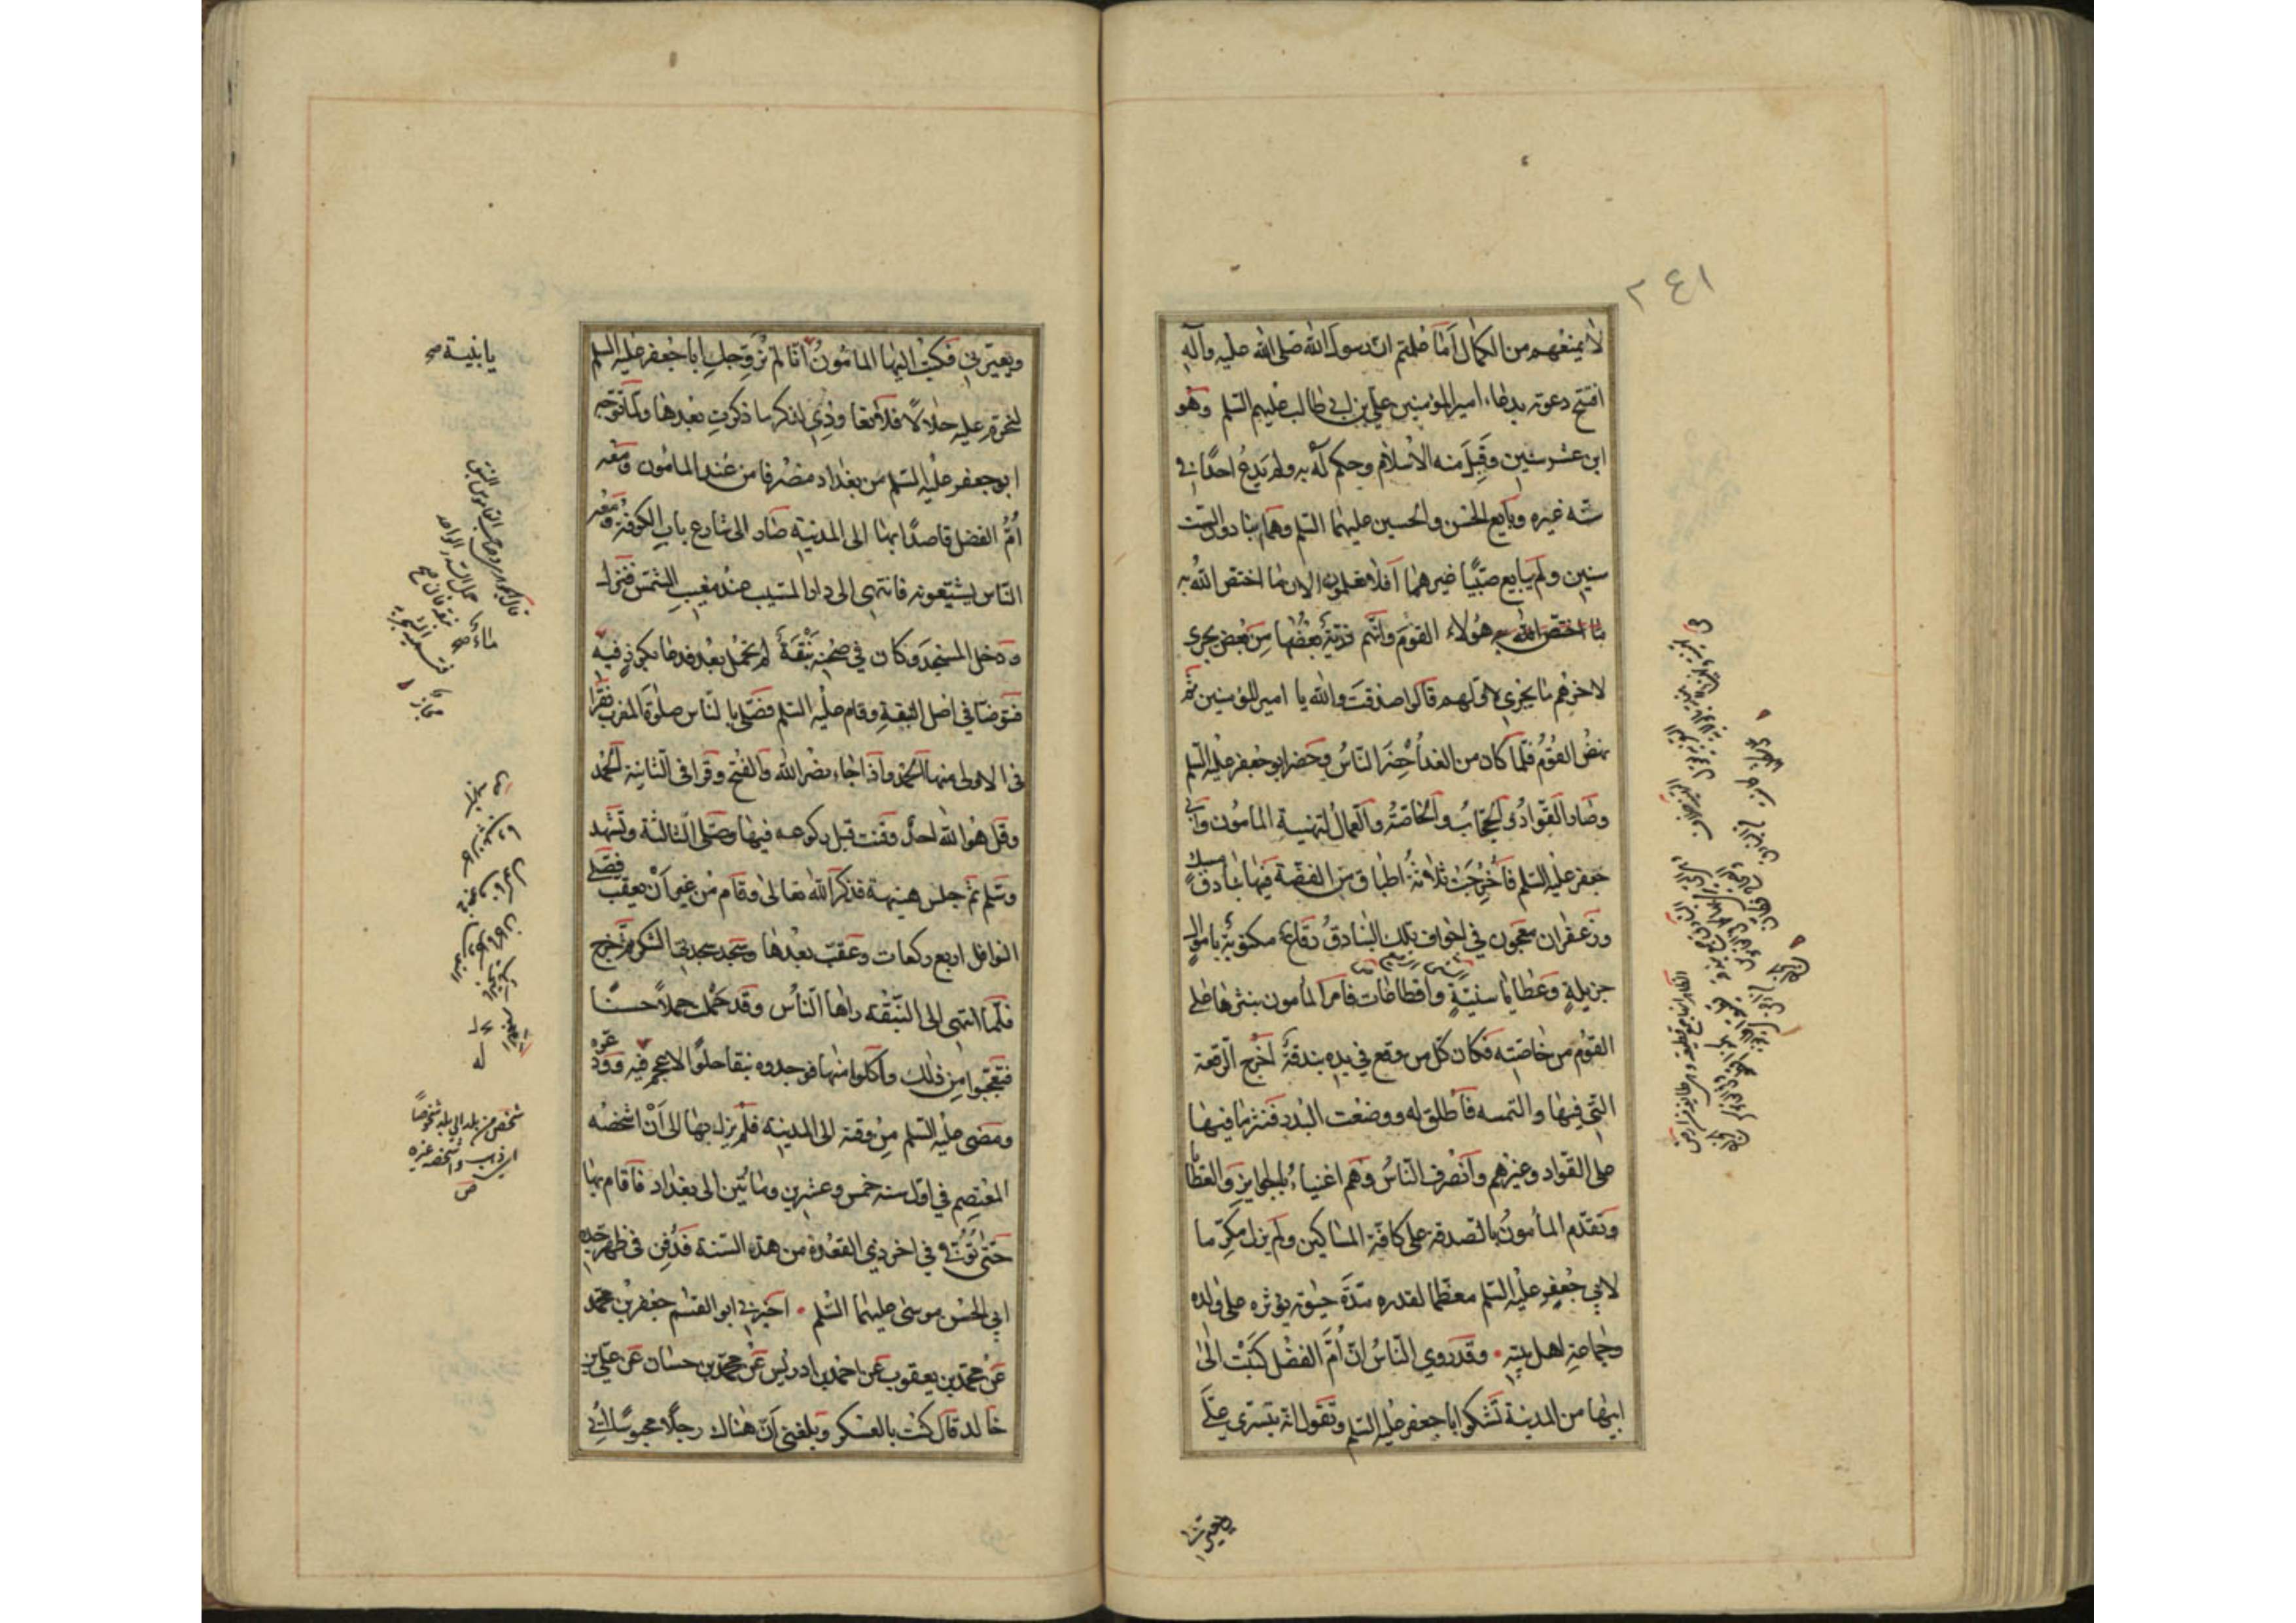 ٢٤١
لا يمنعهم من الكمال أما علمتم ان رسول الله صلى الله عليه وآله
افتتح دعوته بدعاء امير المؤمنين علي بن ابي طالب عليهم السلم وهو
ابن عشر سنين وقبل منه الاسلام وحكم له به ولم يدع احدا في
سنه غيره وبايع الحسن والحسين عليهما السلم وهما ابنا دون الست
سنين ولم يبايع صبيا غيرهما أفلا تعلمون الان ما اختص الله به
ما اختص الله به هؤلاء القوم وانهم ذرية بعضها من بعض يجري
لاخرهم ما يجري لاولهم قالوا صدقت والله يا امير المؤمنين ثم
نهض القوم فلما كان من الغد أحضر الناس وحضر ابو جعفر عليه السلم
وصار القواد والحجاب والخاصة والعمال لتهنية المامون وابي
جعفر عليه السلم فأخرجت ثلاثة أطباق من الفضة فيها بنادق مسك
وزعفران معجون في اجواف تلك البنادق رقاع مكتوبة باموال
جزيلة وعطايا سنية واقطاعات فامر المأمون بنثرها على
القوم من خاصته فكان كل من وقع في يده بندقة أخرج الرقعة
التي فيها والتمسه فأطلق له ووضعت البدر فنثر ما فيها
على القواد وغيرهم وانصرف الناس وهم اغنياء بالجوايز والعطايا
وتقدم المأمون بالصدقة على كافة المساكين ولم يزل مكرما
لابي جعفر عليه السلم معظما لقدره مدة حيوته يؤثره على ولده
وجماعة اهل بيته وقد روي الناس ان أم الفضل كتبت الى
ابيها من المدينة تشكوا ابا جعفر عليه السلم وتقول انه يتسرى علي
ويغيرني
ويغيرني فكتب اليها المامون انا لم نزوجك ابا جعفر عليه السلم
لنحرم عليه حلالا فلا تعاودي لذكر ما ذكرت بعدها ولما توجه
ابو جعفر عليه السلم من بغداد منصرفا من عند المامون ومعه
أم الفضل قاصدا بها الى المدينة صار الى شارع باب الكوفة ومعه
الناس يشيعونه فانتهى الى دار المسيب عند مغيب الشمس فنزل
ودخل المسجد وكان في صحنه نبقة لم تحمل بعد فدعا بكوز فيه
فتوضا في اصل النبقة وقام عليه السلم فصلى بالناس صلوة المغرب فقرا
في الاولى منها الحمد واذا جاء نصر الله والفتح وقرا في الثانية الحمد
وقل هو الله احد وقنت قبل ركوعه فيها وصلى الثالثة وتشهد
وسلم ثم جلس هنيهة فذكر الله تعالى وقام من غير أن يعقب فصلى
النوافل اربع ركعات وعقب بعدها وسجد سجدتي الشكر ثم خرج
فلما انتهى الى النبقة راها الناس وقد حملت حملا حسنا
فتعجبوا من ذلك وأكلوا منها فوجدوه نبقا حلوا لا عجم فيه وودعوه
ومضى عليه السلم من وقته الى المدينة فلم يزل بها الى أن اشخصه
المعتصم في اول سنة خمس وعشرين ومائتين الى بغداد فأقام بها
حتى توفي في اخر ذي القعدة من هذه السنة فدفن في ظهر جده
ابي الحسن موسى عليهما السلم اخبرني ابو القسم جعفر بن محمد
عن محمد بن يعقوب عن احمد بن ادريس عن محمد بن حسان عن علي بن
خالد قال كنت بالعسكر وبلغني أن هناك رجلا محبوسا أتي
شخص من بلد الى بلد شخوصا
اي ذهب واشخصه غيره
ص